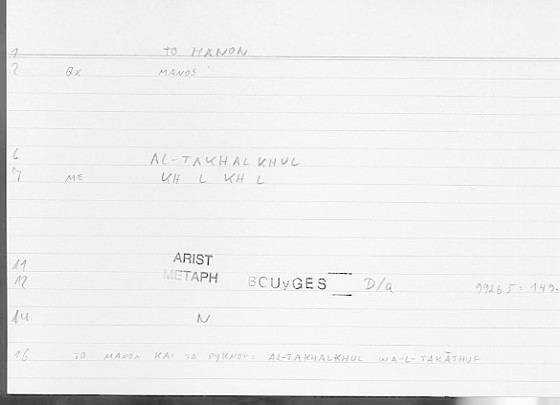 1 TO MANON
2 QX MANOS
6 AL-TAKHALKHUL
7 ME KH L KH L
11 ARIST
12 METAPH BOUyGES D/a 992b5=149.
14 N
16 TO MANON KAI TO PYKNON: AL-TAKHALKHUL WA-L-TAKĀTHUF